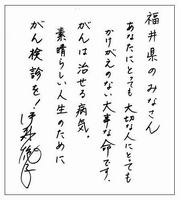 福井県のみなさん
あなたにとっても大切な人にとっても
かけがえのない大事な命です。
がんは治せる病気。
素晴らしい人生のために
がん検診を！